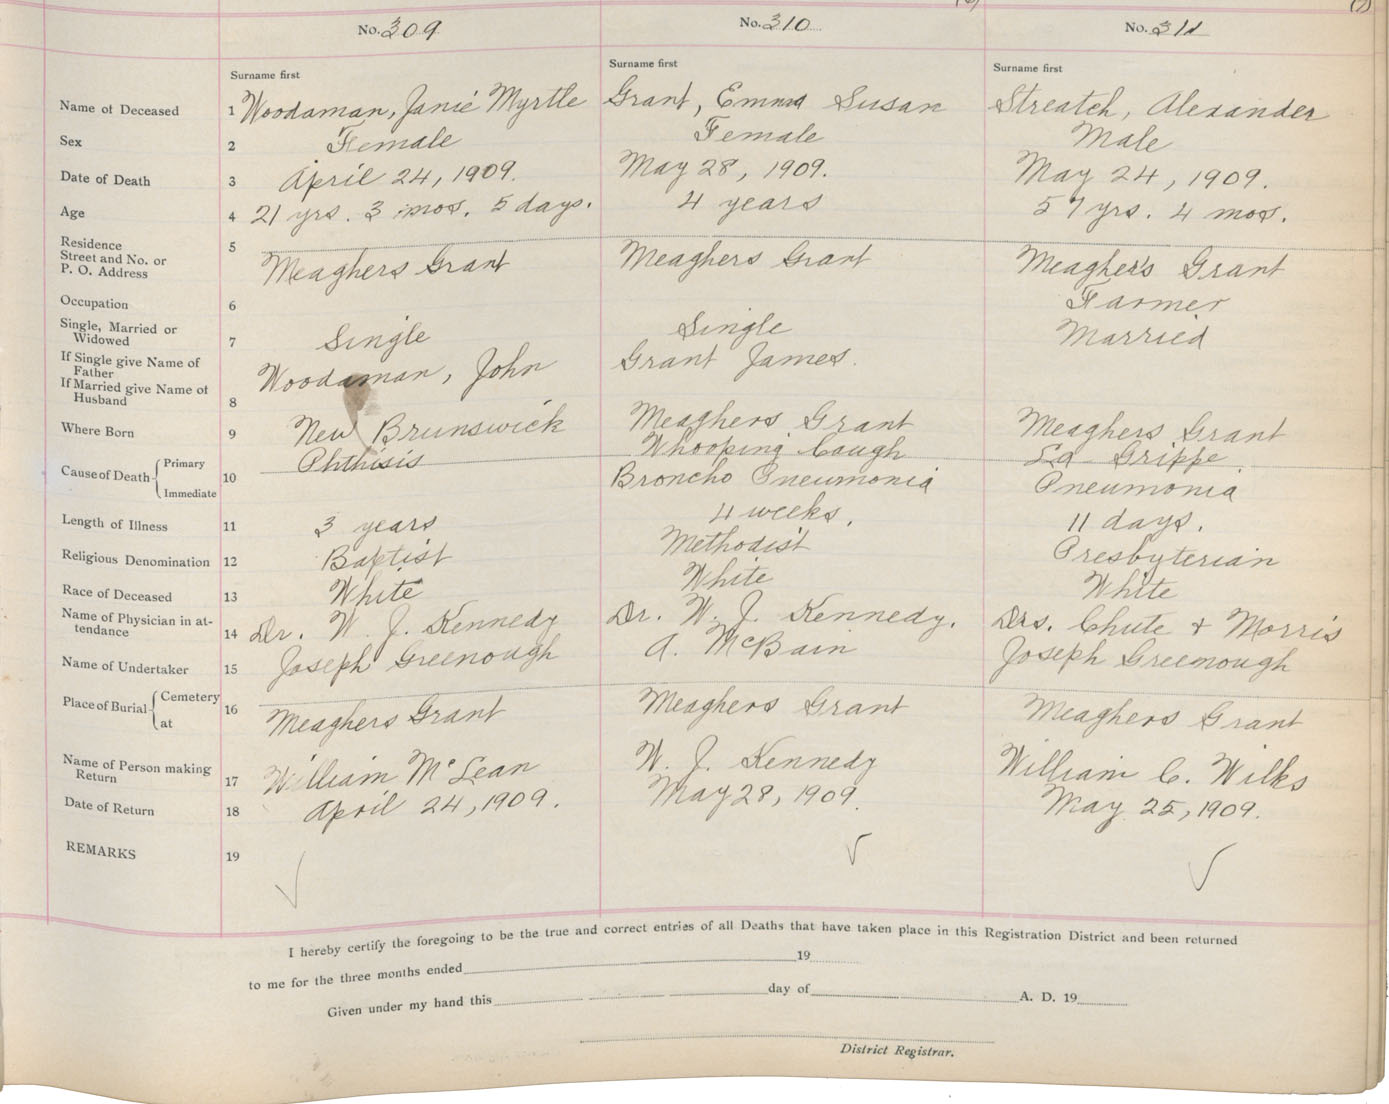 No. 309 No. 310 No. 311
Surname first Surname first Surname first
Name of Deceased 1 Woodaman, Janie Myrtle Grant, Emma Susan Streatch, Alexander
Sex 2 Female Female Male
Date of Death 3 April 24, 1909. May 28, 1909. May 24, 1909.
Age 4 21 yrs. 3 mos. 5 days. 4 years 57 yrs. 4 mos.
Residence
Street and No. or
P. O. Address 5 Meaghers Grant Meaghers Grant Meaghers Grant
Occupation 6 Farmer
Single, Married or
Widowed 7 Single Single Married
If Single give Name of
Father
If Married give Name of
Husband 8 Woodaman, John Grant James.
Where Born 9 New Brunswick Meaghers Grant Meaghers Grant
Cause of Death Primary Phthisis Whooping Cough La Grippe
Immediate 10 Broncho Pneumonia Pneumonia
Length of Illness 11 3 years 4 weeks. 11 days.
Religious Denomination 12 Baptist Methodist Presbyterian
Race of Deceased 13 White White White
Name of Physician in at-
tendance 14 Dr. W. J. Kennedy Dr. W. J. Kennedy. Drs. Chute & Morris
Name of Undertaker 15 Joseph Greenough A. McBain Joseph Greenough
Place of Burial Cemetery
at 16 Meaghers Grant Meaghers Grant Meaghers Grant
Name of Person making
Return 17 William McLean W. J. Kennedy William C. Wilks
Date of Return 18 April 24, 1909. May 28, 1909. May 25, 1909.
REMARKS 19 √ √ √
I hereby certify the foregoing to be the true and correct entries of all Deaths that have taken place in this Registration District and been returned
to me for the three months ended 19
Given under my hand this day of A. D. 19
District Registrar.